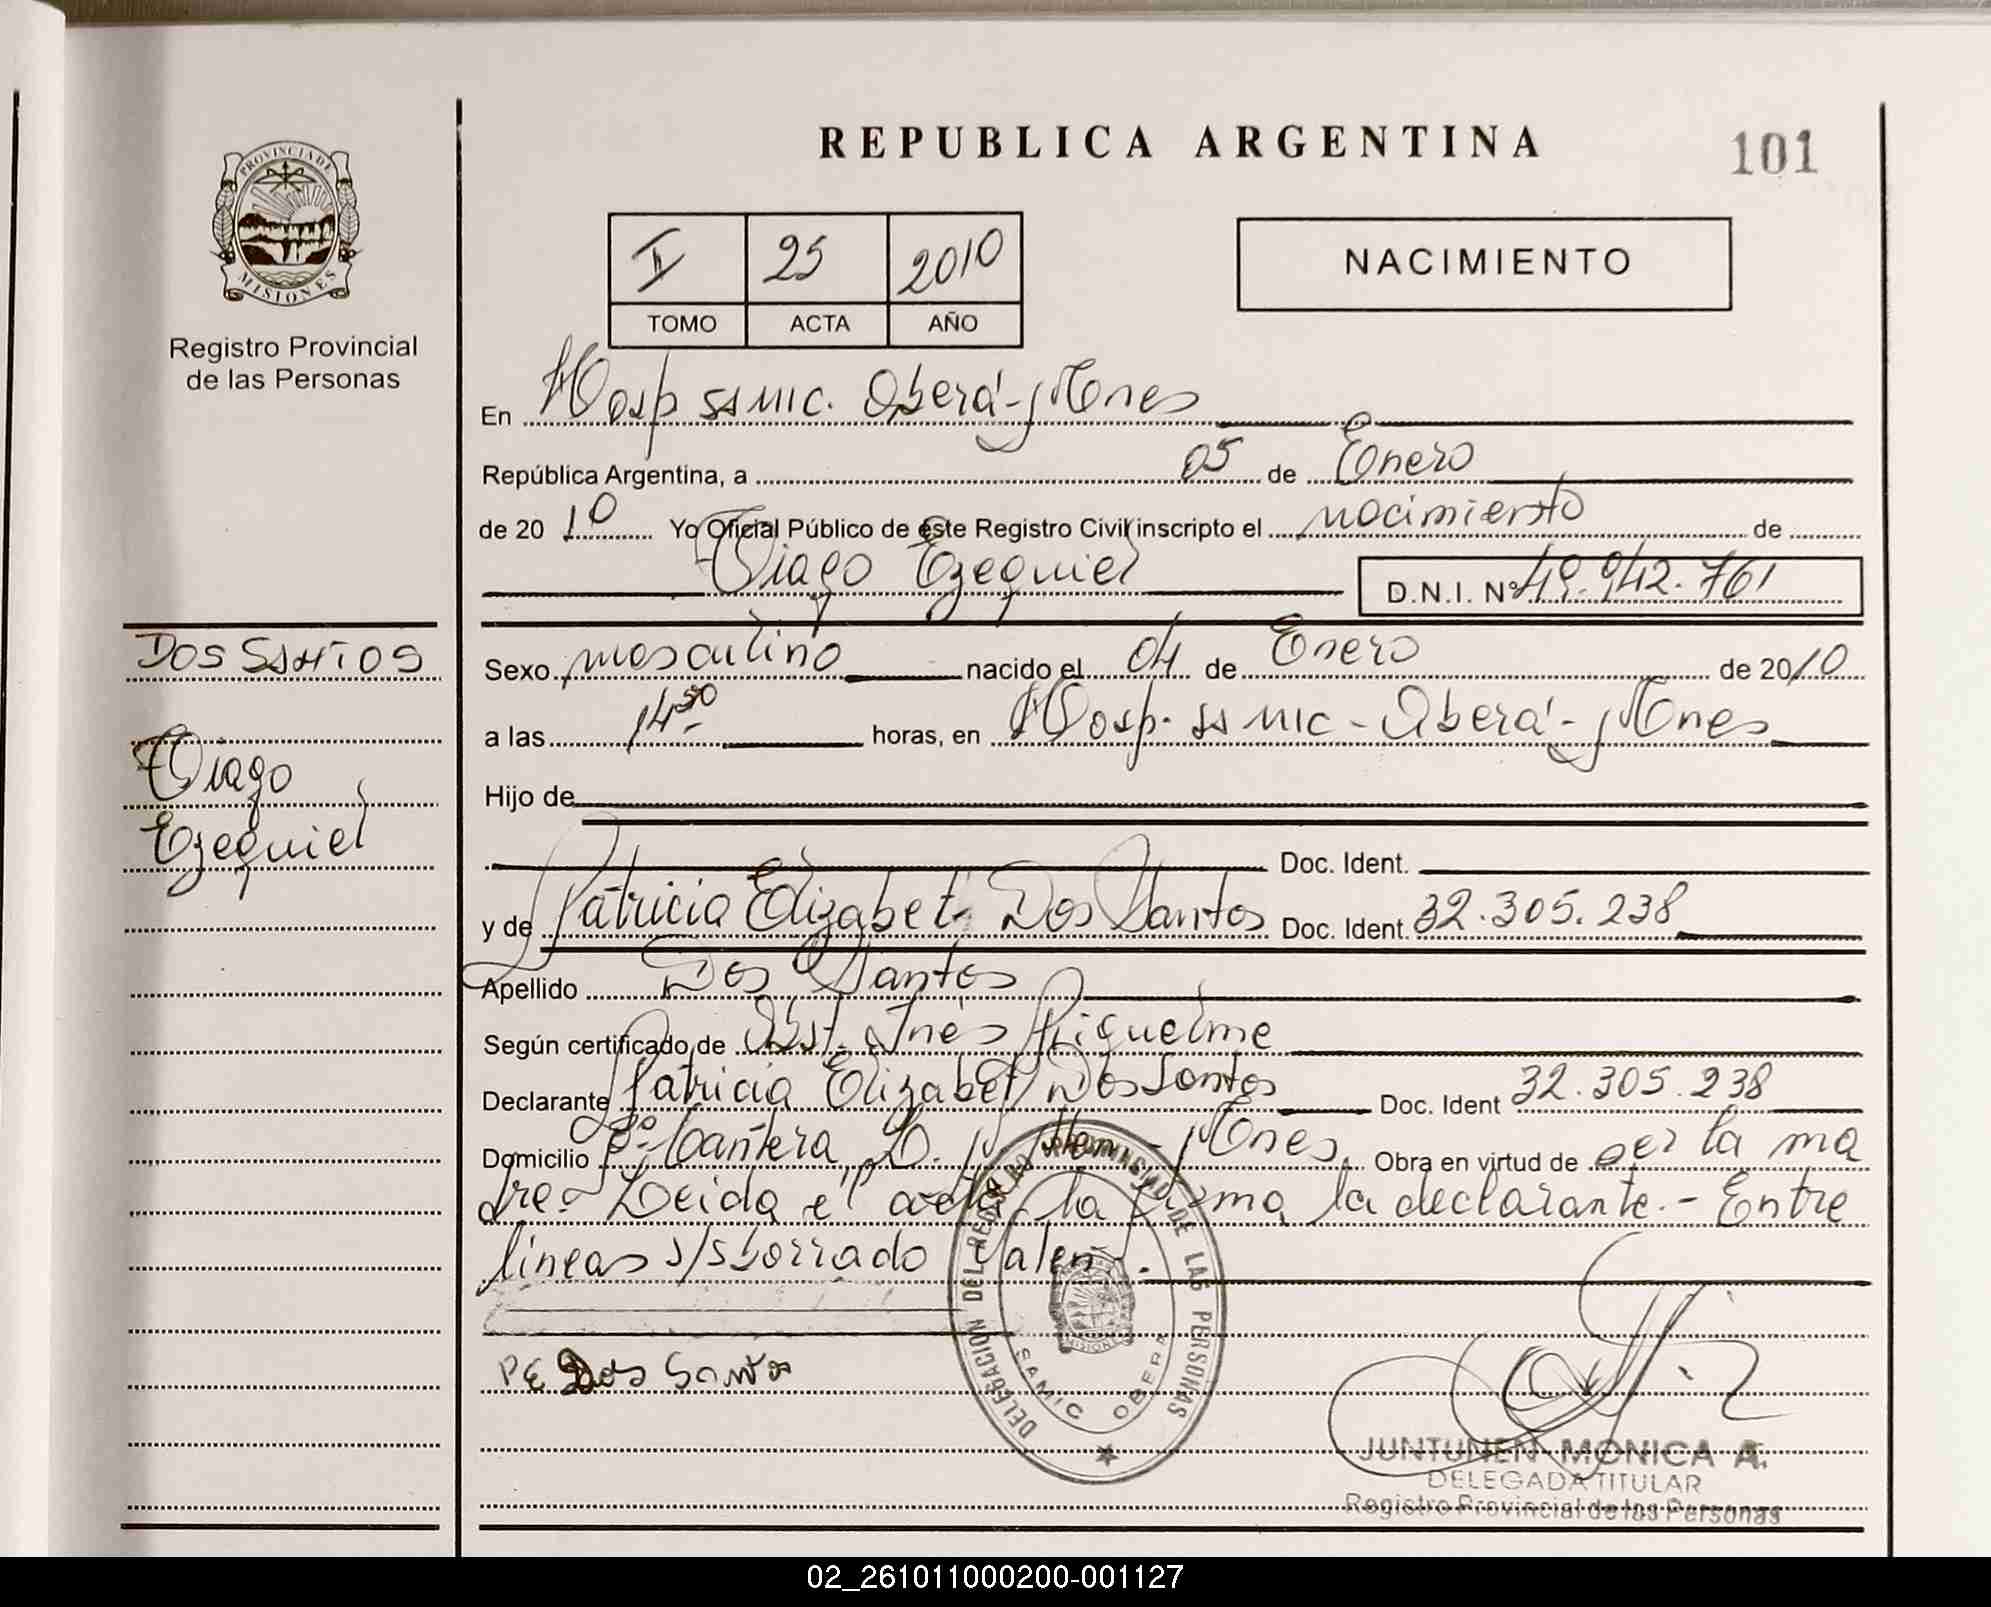 REPUBLICA ARGENTINA
101
PROVINCIA DE
MISIONES
Registro Provincial
de las Personas
II 25 2010
TOMO ACTA AÑO
NACIMIENTO
En Hosp SAMIC. Oberá - Mnes
República Argentina, a 05 de Enero
de 20 10 Yo Oficial Público de este Registro Civil inscripto el nacimiento de
Tiago Ezequiel D.N.I. Nº 49.942.761
DOS SANTOS
Tiago
Ezequiel
Sexo masculino nacido el 04 de Enero de 2010
a las 14 30 horas, en Hosp. SAMIC - Oberá - Mnes
Hijo de
Doc. Ident.
y de Patricia Elizabet Dos Santos Doc. Ident. 32.305.238
Apellido Dos Santos
Según certificado de Obst. Inés Riquelme
Declarante Patricia Elizabet Dos Santos Doc. Ident 32.305.238
Domicilio Bº Cantera L. N. Alem - Mnes. Obra en virtud de ser la ma
dre - Leida el acta la firma la declarante. - Entre
líneas s/s borrado Valen.
PE Dos Santos
DELEGACION DEL REGISTRO PROVINCIAL DE LAS PERSONAS
MISIONES
SAMIC OBERA
JUNTUNEN MONICA A.
DELEGADA TITULAR
Registro Provincial de las Personas
02_261011000200-001127